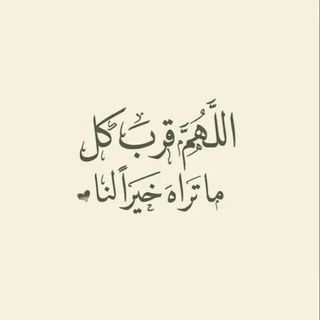 اللَّهُمَّ قربَ كل
ما تَراهَ خَيَراً لنا